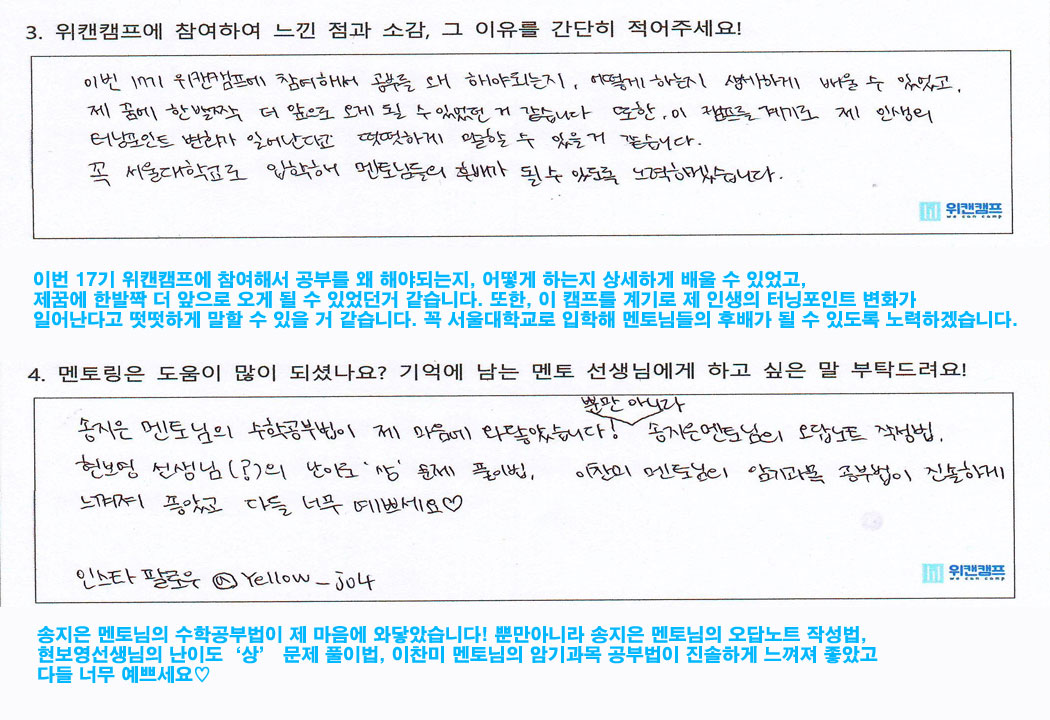 3. 위캔캠프에 참여하여 느낀 점과 소감, 그 이유를 간단히 적어주세요!
이번 17기 위캔캠프에 참여해서 공부를 왜 해야되는지, 어떻게 하는지 상세하게 배울 수 있었고,
제 꿈에 한발짝 더 앞으로 오게 될 수 있었던 거 같습니다 또한, 이 캠프를 계기로 제 인생의
터닝포인트 변화가 일어난다고 떳떳하게 말할 수 있을 거 같습니다.
꼭 서울대학교로 입학해 멘토님들의 후배가 될 수 있도록 노력하겠습니다.
위캔캠프
we can camp
이번 17기 위캔캠프에 참여해서 공부를 왜 해야되는지, 어떻게 하는지 상세하게 배울 수 있었고,
제꿈에 한발짝 더 앞으로 오게 될 수 있었던거 같습니다. 또한, 이 캠프를 계기로 제 인생의 터닝포인트 변화가
일어난다고 떳떳하게 말할 수 있을 거 같습니다. 꼭 서울대학교로 입학해 멘토님들의 후배가 될 수 있도록 노력하겠습니다.
4. 멘토링은 도움이 많이 되셨나요? 기억에 남는 멘토 선생님에게 하고 싶은 말 부탁드려요!
뿐만 아니라
송지은 멘토님의 수학공부법이 제 마음에 와닿았습니다! 송지은멘토님의 오답노트 작성법,
현보영 선생님(?)의 난이도 '상' 문제 풀이법, 이찬미 멘토님의 암기과목 공부법이 진솔하게
느껴져 좋았고 다들 너무 예쁘세요♡
인스타 팔로우 @yellow_jo4
위캔캠프
we can camp
송지은 멘토님의 수학공부법이 제 마음에 와닿았습니다! 뿐만아니라 송지은 멘토님의 오답노트 작성법,
현보영선생님의 난이도 ‘상’ 문제 풀이법, 이찬미 멘토님의 암기과목 공부법이 진솔하게 느껴져 좋았고
다들 너무 예쁘세요♡